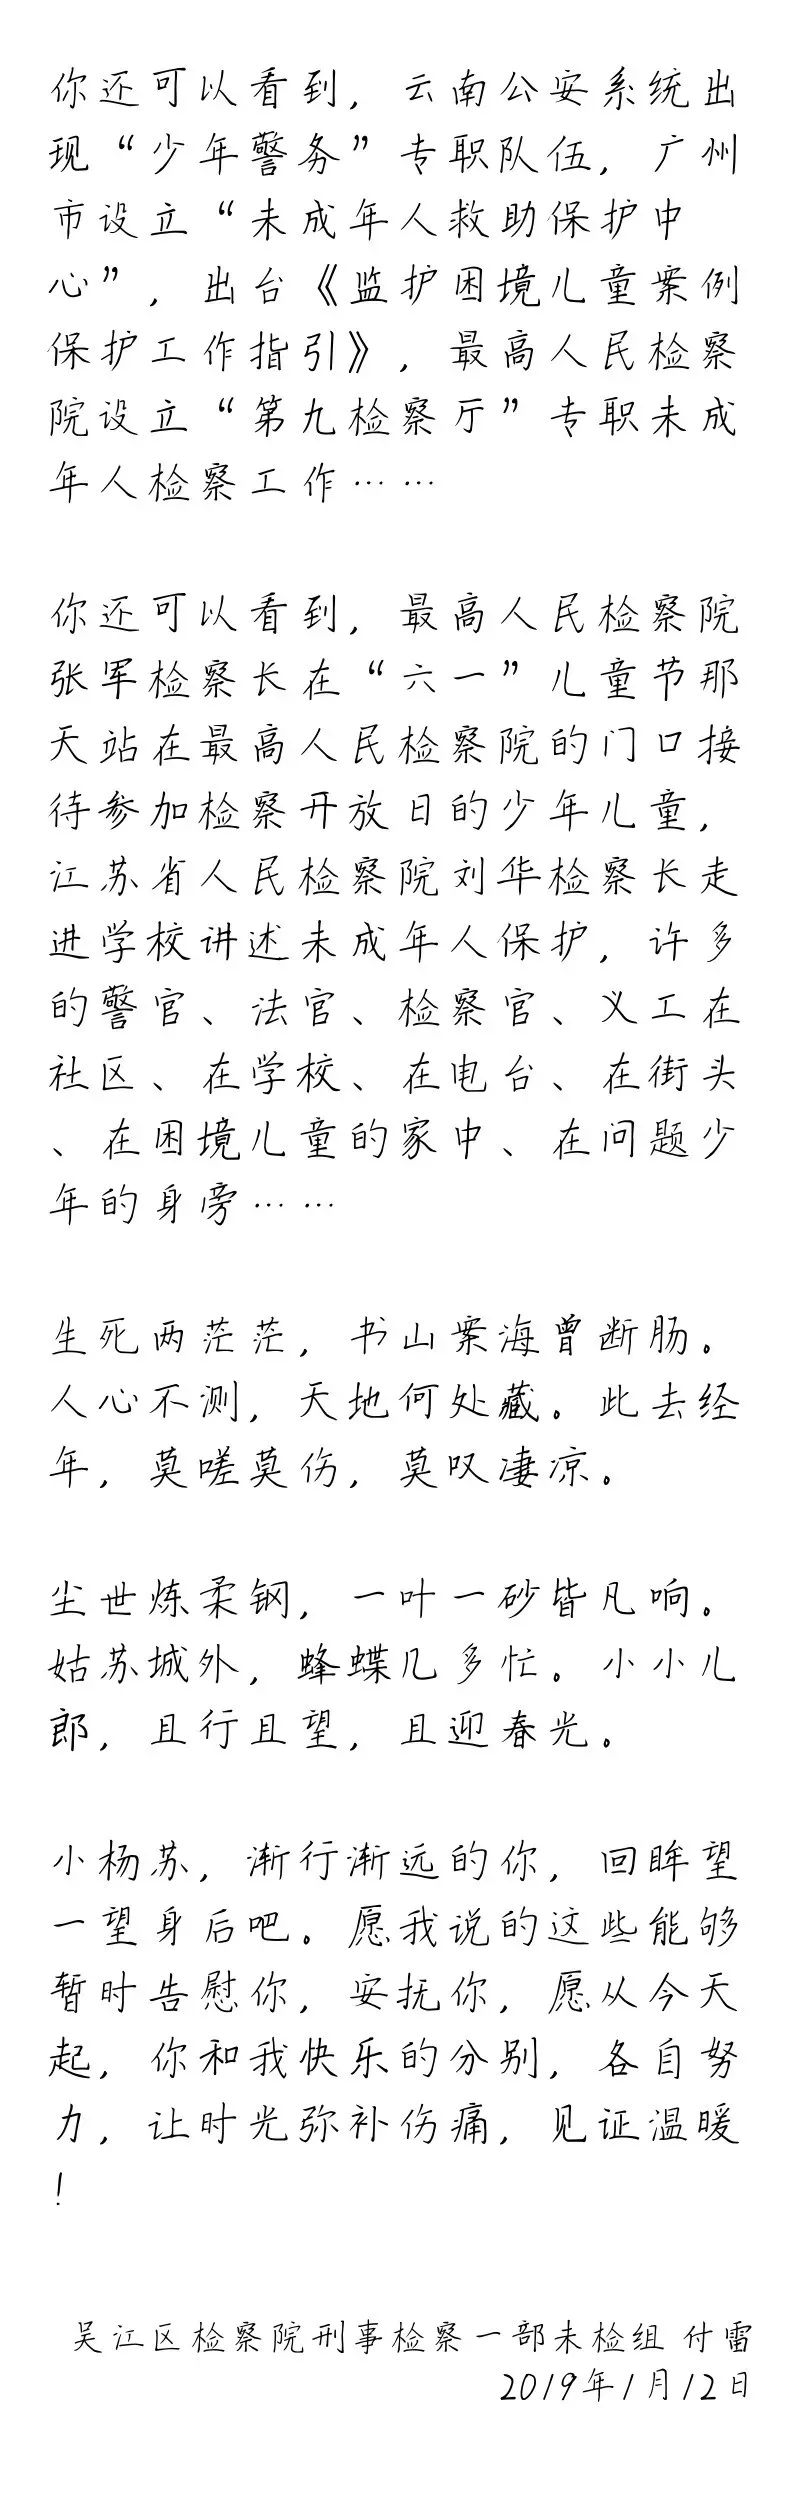 你还可以看到，云南公安系统出
现“少年警务”专职队伍，广州
市设立“未成年人救助保护中
心”，出台《监护困境儿童案例
保护工作指引》，最高人民检察
院设立“第九检察厅”专职未成
年人检察工作……
你还可以看到，最高人民检察院
张军检察长在“六一”儿童节那
天站在最高人民检察院的门口接
待参加检察开放日的少年儿童，
江苏省人民检察院刘华检察长走
进学校讲述未成年人保护，许多
的警官、法官、检察官、义工在
社区、在学校、在电台、在街头
、在困境儿童的家中、在问题少
年的身旁……
生死两茫茫，书山案海曾断肠。
人心不测，天地何处藏。此去经
年，莫嗟莫伤，莫叹凄凉。
尘世炼柔钢，一叶一砂皆凡响。
姑苏城外，蜂蝶几多忙。小小儿
郎，且行且望，且迎春光。
小杨苏，渐行渐远的你，回眸望
一望身后吧。愿我说的这些能够
暂时告慰你，安抚你，愿从今天
起，你和我快乐的分别，各自努
力，让时光弥补伤痛，见证温暖
！
吴江区检察院刑事检察一部未检组 付雷
2019年1月12日